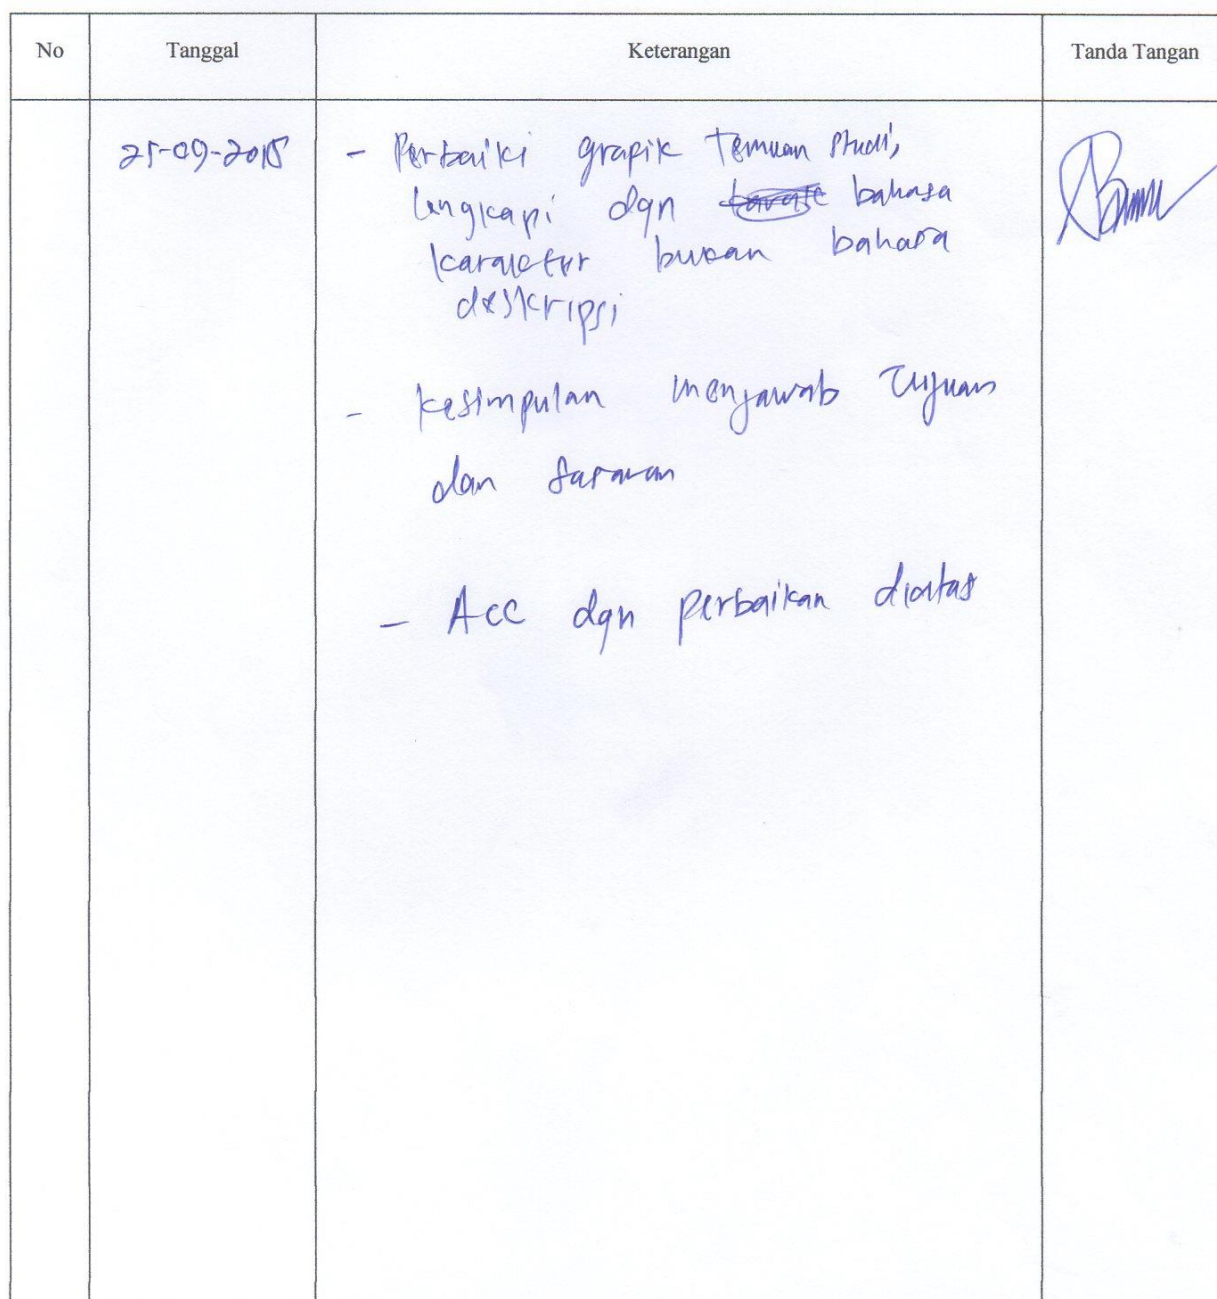 No Tanggal Keterangan Tanda Tangan
25-09-2015 - Perbaiki grapik Temuan Studi,
lengkapi dgn bahasa
karakter bukan bahasa
deskripsi
- kesimpulan menjawab Tujuan
dan sasaran
- Acc dgn perbaikan diatas